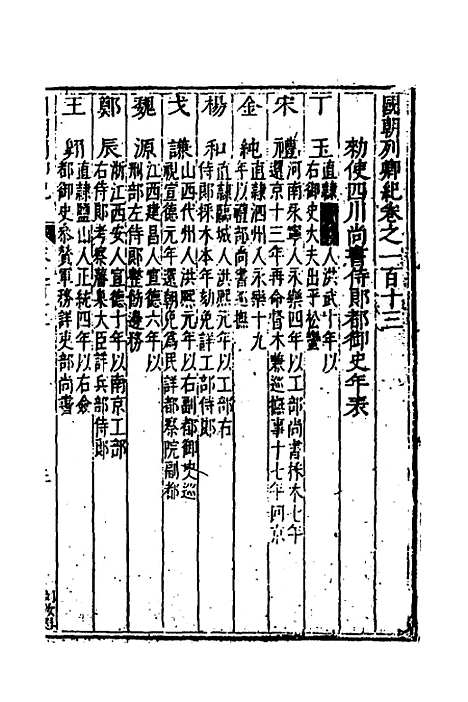 國朝列卿紀卷之一百十三
勑使四川尚書侍郎都御史年表
丁玉
直隸人洪武十年以
右御史大夫出平松蠻
宋禮
河南永寧人永樂四年以工部尚書採木七年
還京十三年再命督木兼巡撫事十七年回京
金純
直隸泗州人永樂十九
年以禮部尚書巡撫
楊和
直隸城人洪熙元年以工部右
侍郎採木本年刼免詳工部侍郎
戈謙
山西代州人洪熙元年以右副都御史巡
視宣德元年還朝免為民詳都察院副都
魏源
江西建昌人宣德六年以
刑部左侍郎整飭邊務
鄭辰
浙江西安人宣德十年以南京工部
右侍郎考察藩臬大臣詳兵部侍郎
王翱
直隸鹽山人正統四年以右僉
都御史叅贊軍務詳吏部尚書